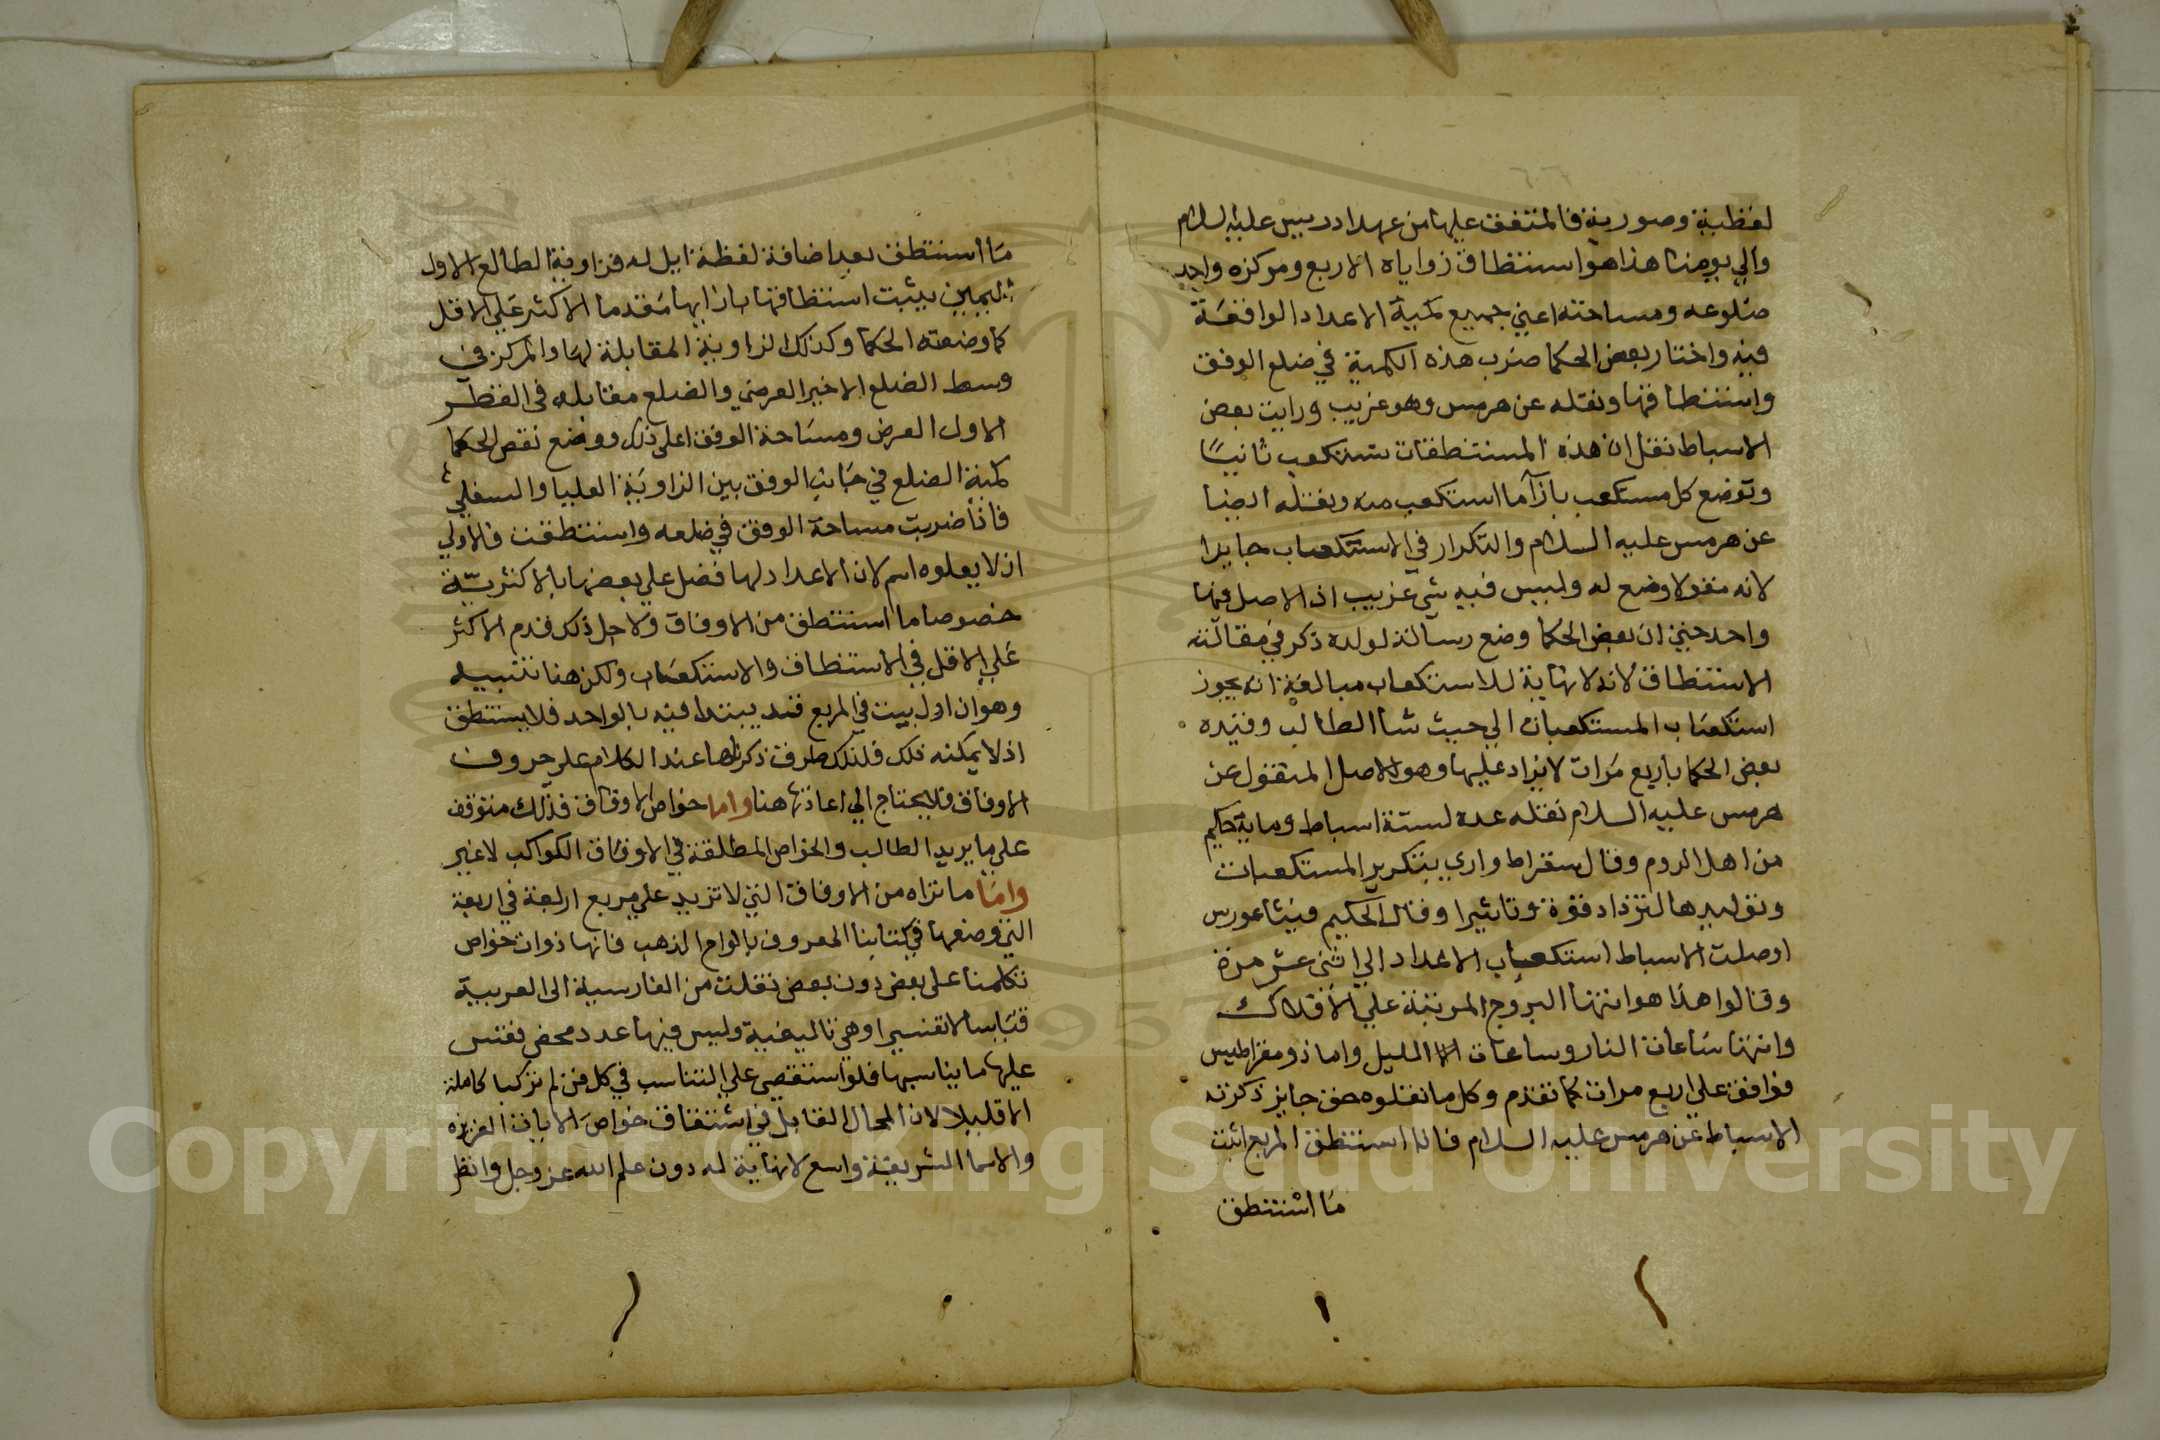 لفظية وصورية فالمتفق عليها من عهد ادريس عليه السلام
والي يومنا هذا هو استنطاق زواياه الاربع ومركزه واحد
ضلوعه ومساحته اعني جميع كمية الاعداد الواقعة
فيه واختار بعض الحكما ضرب هذه الكمية في ضلع الوفق
واستنطاقها ونقله عن هرمس وهو غريب ورايت بعض
الاسباط نقل ان هذه المستنطقات تستكعب ثانيا
وتوضع كل مستكعب بازآ ما استكعب منه ونقله ايضا
عن هرمس عليه السلام والتكرار في الاستكعاب جايزا
لانه منقول وضع له وليس فيه شي غريب اذ الاصل فيها
واحد حتى ان بعض الحكما وضع رسالة لولده ذكر في مقالته
الاستنطاق لانه لا نهاية للاستكعاب مبالغة انه يجوز
استكعاب المستكعبات الي حيث شا الطالب وقيده
بعض الحكما باربع مرات لا يزاد عليها وهو الاصل المنقول عن
هرمس عليه السلام نقله عده لستة اسباط وماية حكيم
من اهل الروم وقال سقراط واري بتكرير المستكعبات
وتوليدها لتزداد قوة وتاثيرا وقال الحكيم فيثاغورس
اوصلت الاسباط استكعاب الاعداد الي اثني عشر مرة
وقالوا هذا هو انتها البروج المرتبة علي الافلاك
وانتها ساعات النار وساعات الليل واما ذو مقراطيس
فوافق علي اربع مرات كما تقدم وكل ما نقلوه حق جايز ذكرته
الاسباط عن هرمس عليه السلام فاذا استنطق المربع اثبت
ما استنطق
ما استنطق بعد اضافة لفظة ايل له فزاوية الطالع الاول
اليمين يثبت استنطاقها بازايها مقدما الاكثر علي الاقل
كما وضعته الحكما وكذلك الزاوية المقابلة لها والمركز في
وسط الضلع الاخير العرضي والضلع مقابله في القطر
الاول العرض ومساحة الوفق اعلي ذلك ووضع نقص الحكما
كمية الضلع في جانب الوفق بين الزاوية العليا والسفلي
فاذا ضربت مساحة الوفق في ضلعه واستنطقت فالاولي
ان لا يعلوه اسم لان الاعداد لها فضل علي بعضها بالاكثرية
خصوصا ما استنطق من الاوفاق ولاجل ذلك قدم الاكثر
علي الاقل في الاستنطاق والاستكعاب ولكن هنا تنبيه
وهو ان اول بيت في المربع قد يبتدا فيه بالواحد فلا يستنطق
اذ لا يمكنه ذلك فلذلك طرق ذكرناها عند الكلام علي حروف
الاوفاق فلا يحتاج الي اعادتها هنا واما خواص الاوفاق فذلك متوقف
علي ما يريد الطالب والخواص المطلقة في الاوفاق الكواكب لا غير
واما ما تراه من الاوفاق التي لا تزيد علي مربع اربعة في اربعة
التي وضعها في كتابنا المعروف بالواح الذهب فانها ذوات خواص
تكلمنا علي بعض دون بعض نقلت من الفارسية الي العربية
قياسا لا تفسيرا وهي تاليفية وليس فيها عدد محض فقس
عليها ما يناسبها فلو استقصي علي التناسب في كل فن لم تركبا كاملة
الا قليلا لان المجال القابل في اشتقاق خواص الايات العزيزه
والاسما الشريفة واسع لا نهاية له دون علم الله عز وجل وانظر
Copyright © King Saud University